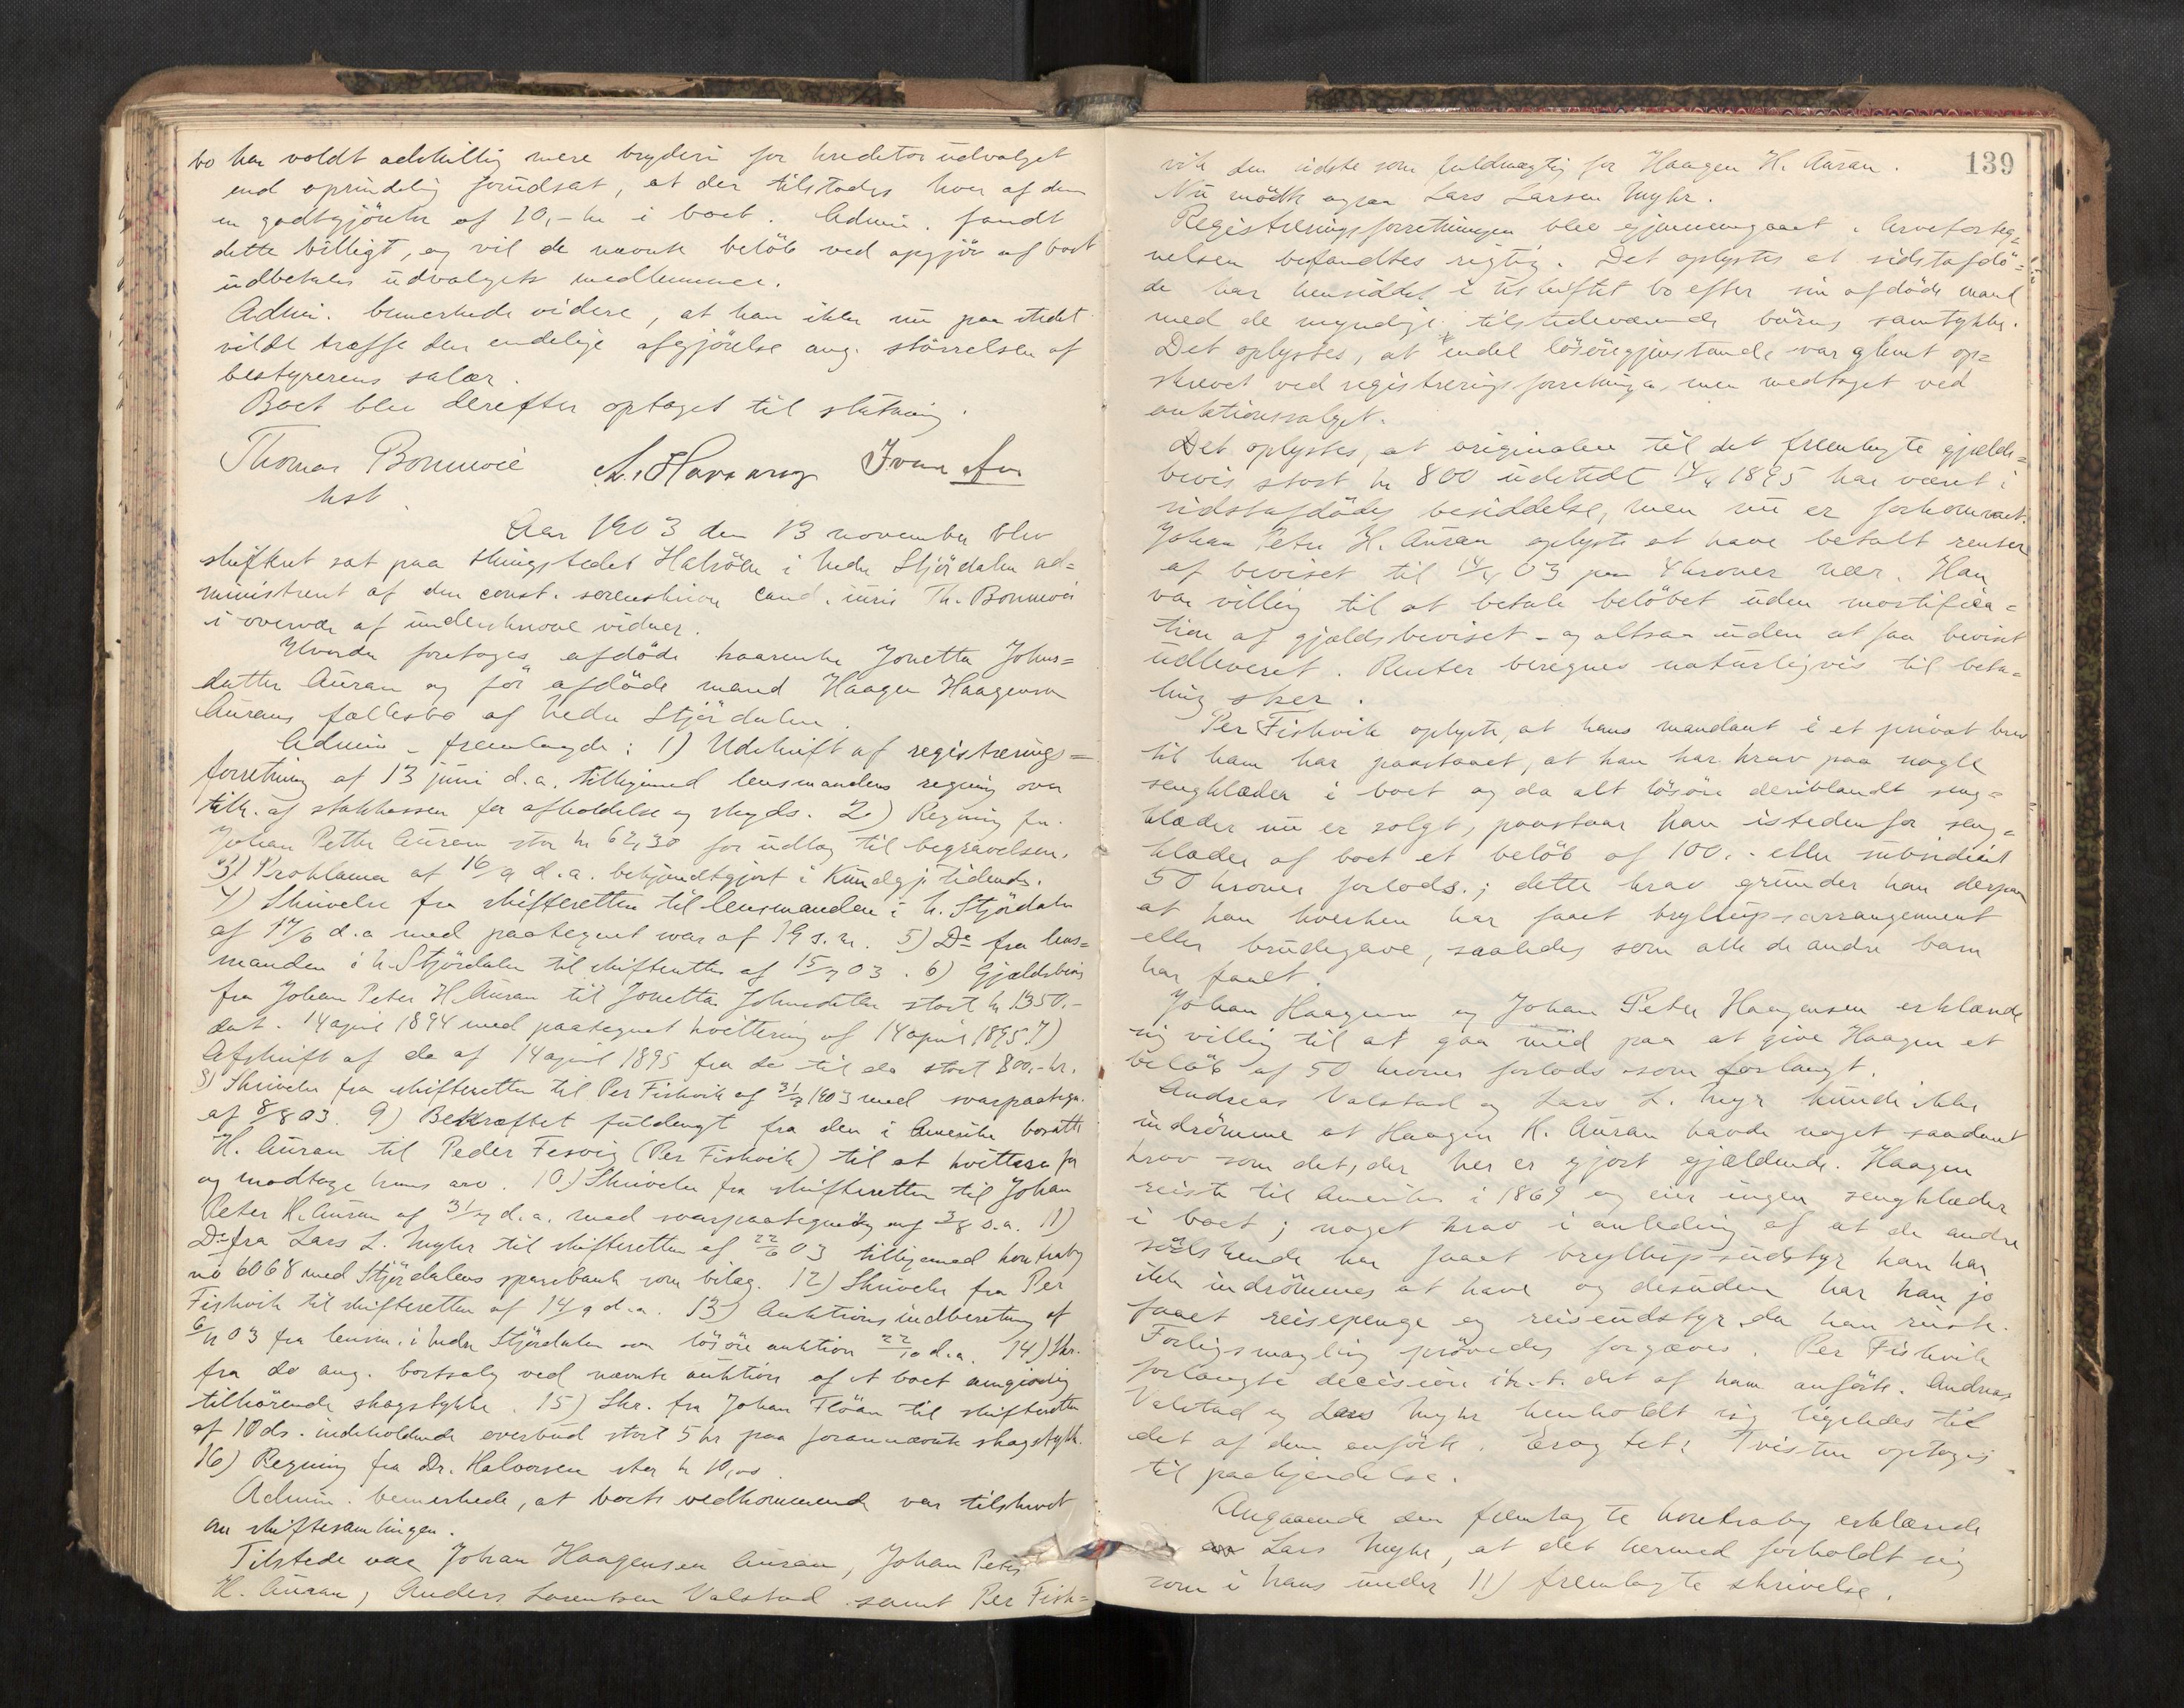 bo har voldt adskillig mere bryderi for kreditorudvalget
end oprindelig forudsat, at der tilstodes hver af dem
en godtgjörelse af 10,- kr i boet. Admin. fandt
dette billigt, og vil de nævnte belöb ved opgjör af boet
udbetales udvalgets medlemmer.
Admin. bemerkede videre, at han ikke nu paa stedet
vilde træffe den endelige afgjörelse ang. störrelsen af
bestyrerens salær.
Boet blev derefter optaget til slutning.
Thomas Bonnevie
kst.
Aar 1903 den 13 november blev
skifteret sat paa thingstedet Halsöen i nedre Stjördalen ad=
ministreret af den const. sorenskriver cand. juris Th. Bonnevie
i overvær af underskrevne vidner.
Hvorda foretoges afdöde kaarenke Jonetta Johns=
datter Auran og för afdöde mand Haagen Haagensen
Aurans fællesbo af nedre Stjördalen.
Admin. fremlagde: 1) Udskrift af registrerings=
forretning af 13 juni d.a. tilligemed lensmandens regning over
tilk. af statskassen for afholdelse og skyds. 2) Regning fra
Johan Petter Auran stor kr 62,30 for udlæg til begravelsen.
3) Proklama af 16/9 d.a. bekjendtgjort i Kundgj. tidende.
4) Skrivelse fra skifteretten til lensmanden i n. Stjördalen
af 17/6 d.a med paategnet svar af 19 s.m. 5) Do fra lens=
manden i n. Stjördalen til skifteretten af 15/7 03. 6) Gjældsbevis
fra Johan Peter H. Auran til Jonetta Johnsdatter stort kr 1350.-
dat. 14 april 1894 med paategnet kvittering af 14 april 1895. 7)
Afskrift af do af 14 april 1895 fra do til do stort 800,- kr.
8) Skrivelse fra skifteretten til Per Fiskvik af 31/7 1903 med svarpaategn.
af 8/8 03. 9) Bekræftet fuldmagt fra den i Amerika bosatte
H. Auran til Peder Fesvig (Per Fiskvik) til at kvittere for
og modtage hans arv. 10) Skrivelse fra skifteretten til Johan
Peter H. Auran af 31/7 d.a. med svarpaategning af 3/8 s.a. 11)
Do fra Lars L. Myhr til skifteretten af 22/6 03 tilligemed kontrabog
no 6068 med Stjördalens sparebank som bilag. 12) Skrivelse fra Per
Fiskvik til skifteretten af 14/9 d.a. 13) Auktionsindberetning af
6/11 03 fra lensm. i nedre Stjördalen om lösöre auktion 22/10 d.a. 14) Skr.
fra do ang. bortsalg ved nævnte auktion af et boet
tilhörende skogstykke. 15) Skr. fra Johan Flöan til skifteretten
af 10 ds. indeholdende overbud stort 5 kr paa forannævnte skogstykke.
16) Regning fra Dr. Halvorsen stor kr 10,00.
Admin. bemerkede, at boets vedkommende var tilskrevet
om skiftesamlingen.
Tilstede var Johan Haagensen Auran, Johan Peter
H. Auran, Anders Lorentsen Valstad samt Per Fisk=
139
vik den sidste som fuldmægtig for Haagen H. Auran.
Nu mödte ogsaa Lars Larsen Myhr.
Registreringsforretningen blev gjennemgaaet. Arvefortegn=
nelsen befandtes rigtig. Det oplystes at sidstafdö=
de har hensiddet i uskiftet bo efter sin afdöde mand
med de myndige, tilstedeværende börns samtykke.
Det oplystes, at endel lösöregjenstande var glemt op=
skrevet ved registreringsforretningen, men medtaget ved
auktionssalget.
Det oplystes, at originalen til det fremlagte gjælds=
bevis stort kr 800 udstedt 14/4 1895 har været i
sidstafdödes besiddelse, men nu er forkommet.
Johan Peter H. Auran oplyste at have betalt renter
af beviset til 14/4 03 paa 4 kroner nær. Han
var villig til at betale belöbet uden mortifica=
tion af gjældsbeviset - og altsaa uden at faa beviset
udleveret. Renter beregnes naturligvis til beta=
ling sker.
Per Fiskvik oplyste, at hans mandant i et privat brev
til ham har paastaaet, at han har krav paa nogle
sengklæder i boet og da alt lösöre deriblandt seng=
klæder nu er solgt, paastaar han istedenfor seng=
klæder af boet et belöb af 100.- eller subsidiert
50 kroner forlods.; dette krav grunder han derpaa
at han hverken har faaet bryllupsarrangement
eller brudegave, saaledes som alle de andre barn
har faaet.
Johan Haagensen og Johan Peter Haagensen erklærede
sig villig til at gaa med paa at give Haagen et
belöb af 50 kroner forlods som forlangt.
Andreas Valstad og Lars L. Myr kunde ikke
indrömme at Haagen H. Auran havde noget saadant
krav som det, der her er gjort gjældende. Haagen
reiste til Amerika i 1869 og eier ingen sengklæder
i boet; noget krav i anledning af at de andre
söskende har faaet bryllupsudstyr kan han
ikke indrömmes at have og desuden har han jo
faaet reisepenge og reiseudstyr da han reiste.
Forligsmægling prövedes forgjæves. Per Fiskvik
forlangte decision i h. t. det af ham anförte. Andreas
Valstad og Lars Myhr henholdt sig ligeledes til
det af dem anförte. Eragtet: Tvisten optages
til paakjendelse.
Angaaende den fremlagte kontrabog erklærede
Lars Myhr, at det hermed forholdt sig
som i hans under 11) fremlagte skrivelse.